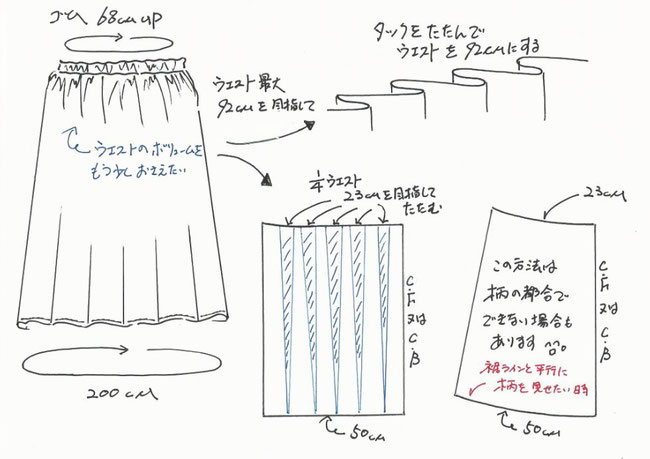 ゴム 68cm up
ウエストのボリュームを
もう少しおさえたい
200cm
ウエスト最大
92cmを目指して
タックをたたんで
ウエストを92cmにする
1/4ウエスト
23cmを目指して
たたむ
C・F又はC・B
50cm
23cm
この方法は
柄の都合で
できない場合も
あります
裾ラインと平行に
柄を見せたい時
C・F又はC・B
50cm